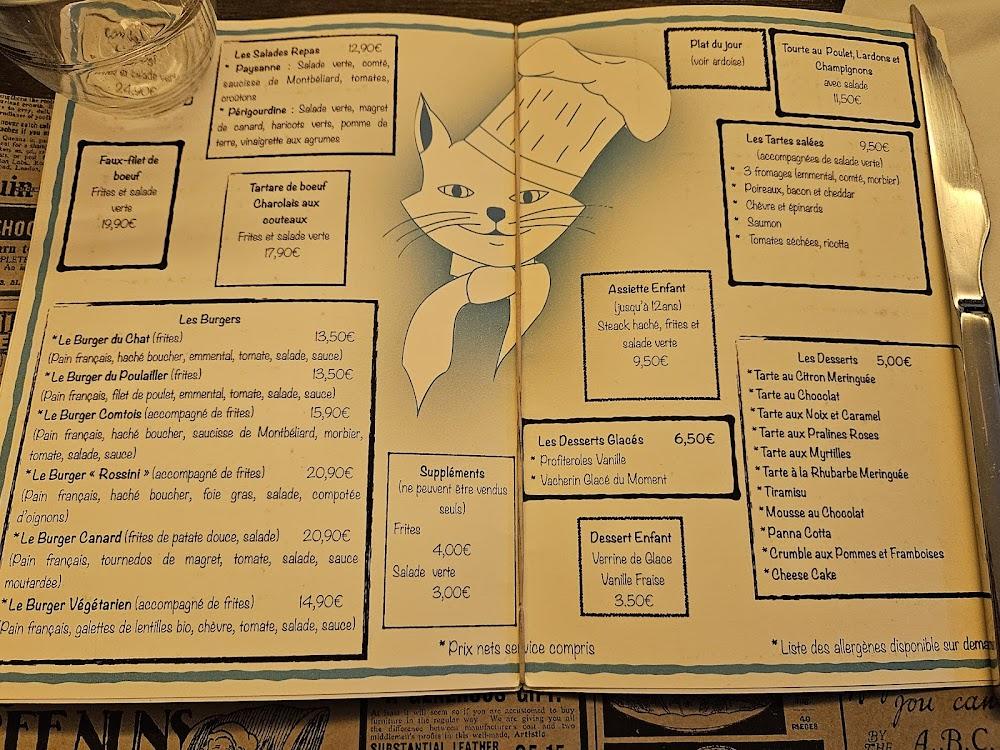 24,90€
Les Salades Repas 12,90€
* Paysanne : Salade verte, comté,
saucisse de Montbéliard, tomates,
croûtons
* Périgourdine : Salade verte, magret
de canard, haricots verts, pomme de
terre, vinaigrette aux agrumes
Faux-filet de
boeuf
Frites et salade
verte
19,90€
Tartare de boeuf
Charolais aux
couteaux
Frites et salade verte
17,90€
Les Burgers
*Le Burger du Chat (frites) 13,50€
(Pain français, haché boucher, emmental, tomate, salade, sauce)
*Le Burger du Poulailler (frites) 13,50€
(Pain français, filet de poulet, emmental, tomate, salade, sauce)
*Le Burger Comtois (accompagné de frites) 15,90€
(Pain français, haché boucher, saucisse de Montbéliard, morbier,
tomate, salade, sauce)
*Le Burger « Rossini » (accompagné de frites) 20,90€
(Pain français, haché boucher, foie gras, salade, compotée
d'oignons)
*Le Burger Canard (frites de patate douce, salade) 20,90€
(Pain français, tournedos de magret, tomate, salade, sauce
moutardée)
*Le Burger Végétarien (accompagné de frites) 14,90€
(Pain français, galettes de lentilles bio, chèvre, tomate, salade, sauce)
Suppléments
(ne peuvent être vendus
seuls)
Frites
4,00€
Salade verte
3,00€
*Prix nets service compris
Plat du jour
(voir ardoise)
Tourte au Poulet, Lardons et
Champignons
avec salade
11,50€
Les Tartes salées 9,50€
(accompagnées de salade verte)
* 3 fromages (emmental, comté, morbier)
* Poireaux, bacon et cheddar
* Chèvre et épinards
* Saumon
* Tomates séchées, ricotta
Assiette Enfant
(jusqu'à 12ans)
Steack haché, frites et
salade verte
9,50€
Les Desserts Glacés 6,50€
* Profiteroles Vanille
* Vacherin Glacé du Moment
Dessert Enfant
Verrine de Glace
Vanille Fraise
3,50€
Les Desserts 5,00€
*Tarte au Citron Meringuée
*Tarte au Chocolat
*Tarte aux Noix et Caramel
*Tarte aux Pralines Roses
*Tarte aux Myrtilles
*Tarte à la Rhubarbe Meringuée
*Tiramisu
*Mousse au Chocolat
*Panna Cotta
*Crumble aux Pommes et Framboises
*Cheese Cake
*Liste des allergènes disponible sur dema
At least it will seem so if you are accustomed to buy
furniture in the regular way. We are giving you all
the difference between manufacturer's cost and two
middlemen's profits in this well-made, Artistic
SUBSTANTIAL LEATHER
40
PIECES
you can
BY
THE A.B.C.